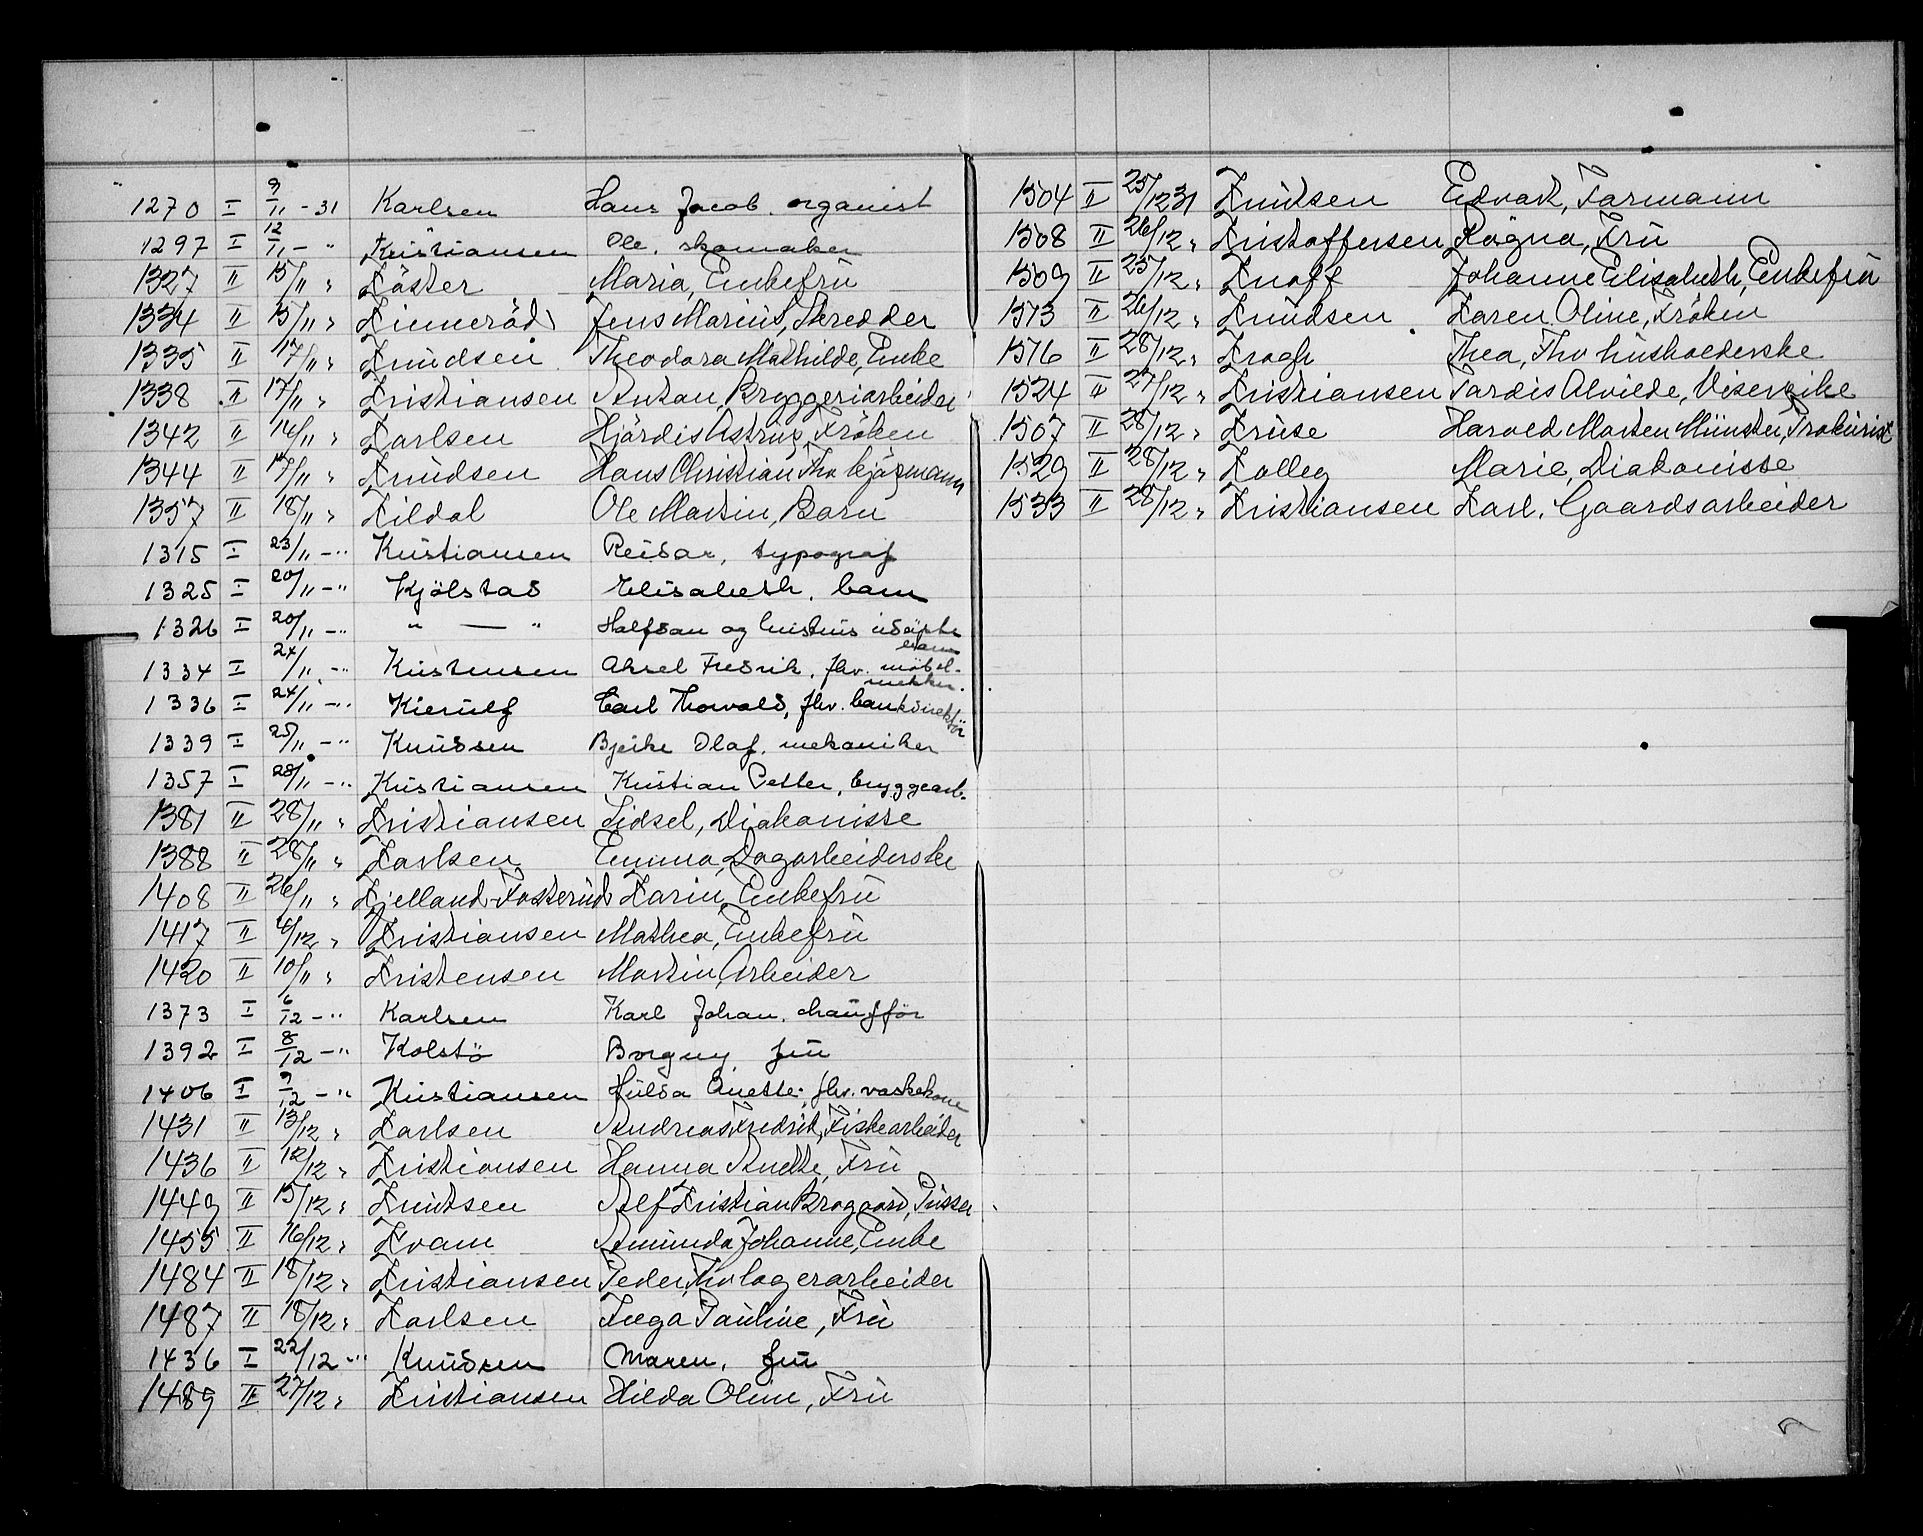 1270 I 9/11 - 31 Karlsen Hans Jacob. organist
1297 I 12/11 - " Kristiansen Ole. skomaker
1327 II 15/11 " Köster Maria, Enkefrü
1334 II 15/11 " Kinneröd Jens Marius, Skredder
1335 II 17/11 " Knudsen Theodora Mathilde, Enke
1338 II 17/11 " Kristiansen Anton, Bryggeriarbeider
1342 II 14/11 " Karlsen Hjördis Astrup, Fröken
1344 II 17/11 " Knudsen Hans Christian, Fhv kjögmann
1357 II 18/11 " Kildal Ole Martin, Barn
1315 I 23/11 - " Kristiansen Reidar, typograf
1325 I 20/11 - " Kjölstad Elisabeth, barn
1326 I 20/11 - " " — " Halfdan og Kristins udöpte barn
1334 I 24/11 - " Kristensen Aksel Fredrik, fhv. möbel-
1336 I 24/11 - " Kierulf Carl Thorvald, fhv. bankdirektör
1339 I 25/11 - " Knudsen Bjerke Olaf. mekaniker
1357 I 28/11 - " Kristiansen Kristian Petter, bryggearb.
1381 II 28/11 " Kristiansen Sidsel, Diakonisse
1388 II 28/11 " Karlsen Emma, Dagarbeiderske
1408 II 26/11 " Kjelland-Fosterud Karin, Enkefrü
1417 II 6/12 " Kristiansen Mathea, Enkefrü
1420 II 10/11 " Kristensen Martin, Arbeider
1373 I 6/12 - " Karlsen Karl Johan. chaufför
1392 I 8/12 - " Kolstö Borgny frü
1406 I 9/12 - " Kristiansen Hulda Anette, fhv. vaskekone
1431 II 13/12 " Karlsen Andreas Fredrik, Fiskearbeider
1436 II 12/12 " Kristiansen Hanna Anette, Frü
1449 II 15/12 " Knudsen Alf Kristian Brogaard, Pusser
1455 II 16/12 " Kvam Amunda Johanne, Enke
1484 II 18/12 " Kristiansen Peder, Fhv lagerarbeider
1487 II 18/12 " Karlsen Inga Pauline, Frü
1436 I 22/12 - " Knudsen Maren, frü
1489 II 27/12 " Kristiansen Hilda Oline, Frü
1504 II 25/12 31 Knudsen Edvard, Formann
1508 II 26/12 " Kristoffersen Ragna, Frü
1509 II 25/12 " Knoff Johanne Elisabeth, Enkefrü
1513 II 26/12 " Knudsen Karen Oline, Fröken
1516 II 28/12 " Krogh Thea, Fhv husholderske
1524 II 27/12 " Kristiansen Tordis Alvilde, Viserpike
1507 II 28/12 " Kruse Harald Morten Münster, Prokurist
1529 II 28/12 " Kolleg Marie, Diakonisse
1533 II 28/12 " Kristiansen Karl, Gaardsarbeider